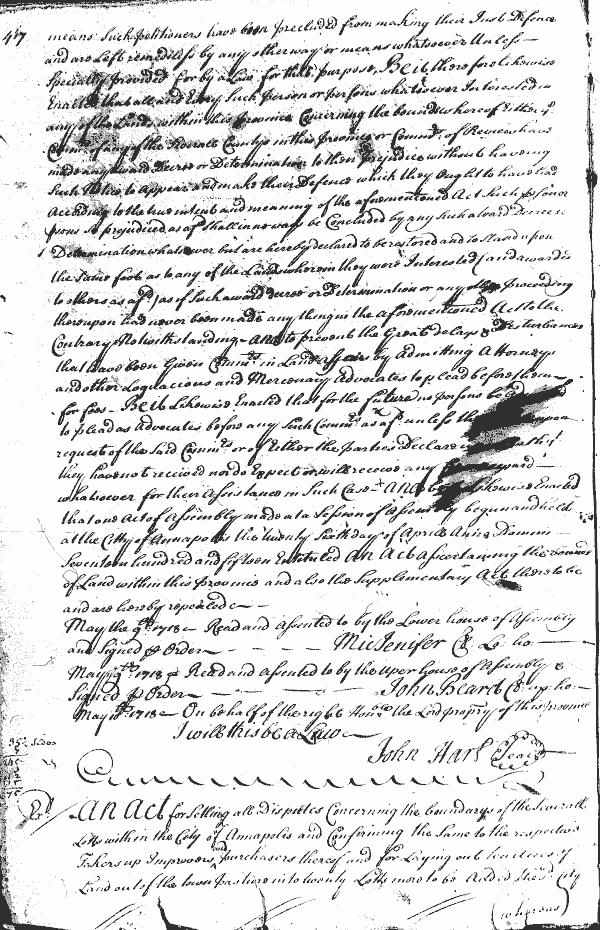 means Such petitioners have been precluded from making their Just Defence
and are Left remediless by any other way or means whatsoever Unless
Specially provided for by a Law for that purpose, Be it therefore Likewise
Enacted that all and Every Such person or persons whatsoever Interested in
any of the Lands within this province Concerning the bounds whereof Either ye
Comrs of any of the Several Countys in this province or Commrs of Review have
made any award Decree or Determination to their prejudice without having
Such Notice to appear and make their Defence which they Ought to have had
According to the true intent and meaning of the aforementioned Act Such person or
psons so prejudiced as afd Shall in no ways be Concluded by any Such award Decree or
Determination whatsoever but are hereby declared to be restored and to Stand upon
the Same foot as to any of the Lands wherein they were Interested (and awards
to others as afd) as if Such award decree or Determination or any other proceeding
thereupon had never been made any thing in the aforementioned Act to the
Contrary Notwithstanding - And to prevent the Great delays & Disturbances
that have been Given Commrs in Land affairs by Admitting Attorneys
and other Loquacious and Mercenary Advocates to plead before them
for fees - Be it Likewise Enacted that for the future no persons be
to plead as Advocates before any Such Commrs as afd unless upon
request of the Said Commrs or of Either the parties Declare
they have not received nor do Expect or will receive any reward
whatsoever for their Assistance in Such Case - And be Likewise Enacted
that one Act of Assembly made at a Session of Assembly begun and held
at the Citty of Annapolis the twenty Sixth day of Aprill Anno Domini
Seventeen hundred and fifteen Entituled An Act ascertaining the bounds
of Land within this Province and also the Supplementary Act thereto be
and are hereby repealed
May the 9th 1718 - Read and assented to by the Lower house of Assembly
and Signed p Order - - - - Mic Jenifer Cl Lo. ho.
May 9th 1718 - Read and assented to by the Uper house of Assembly &
Signed p Order - - - John Beard Cl up. ho.
May 1718 - On behalf of the right Honble the Lord propry of this province
I will this be a Law
John Hart Seal
An Act for Settling all Disputes Concerning the boundarys of the Severall
Lotts within the City of Annapolis and Confirming the Same to the respective
Takers up Improvers and purchasers thereof and for Laying out ten acres of
Land out of the town pasture into twenty Lotts more to be Added to the sd City
(whereas)